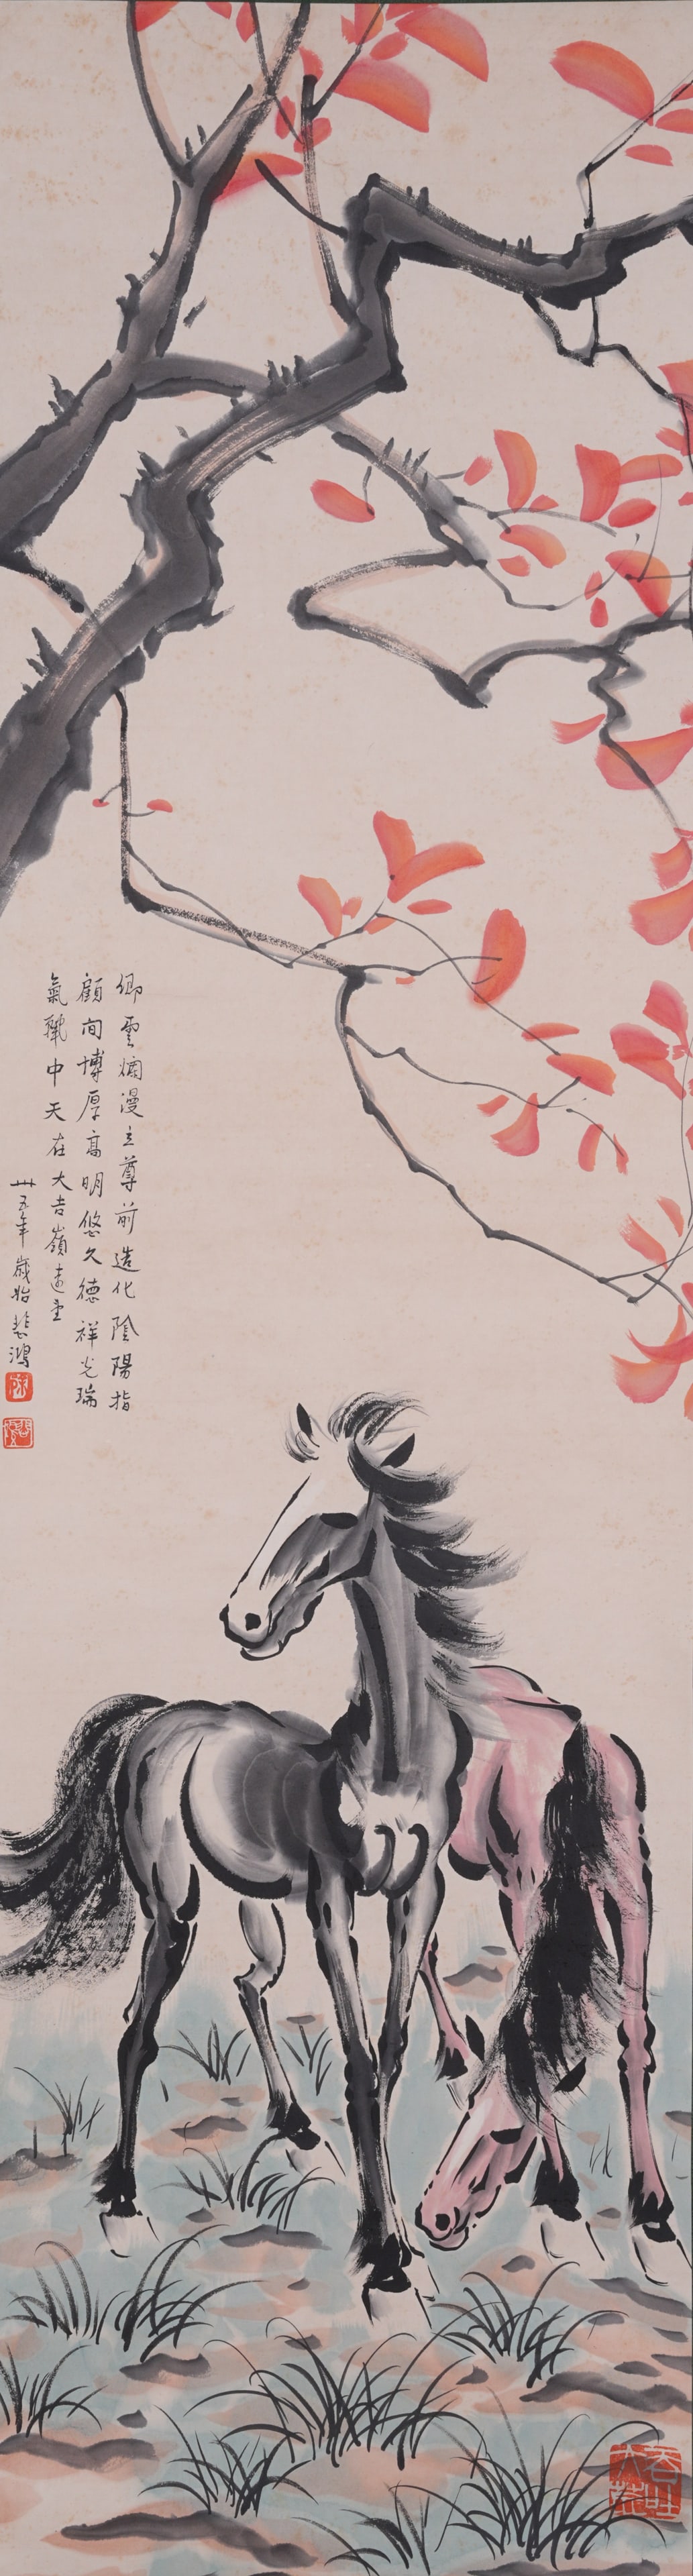 卿雲爛漫立尊前造化陰陽指
顧间博厚高明悠久德祥光瑞
氣執中天在大吉嶺
卅五年歲始悲鴻
吞吐大荒